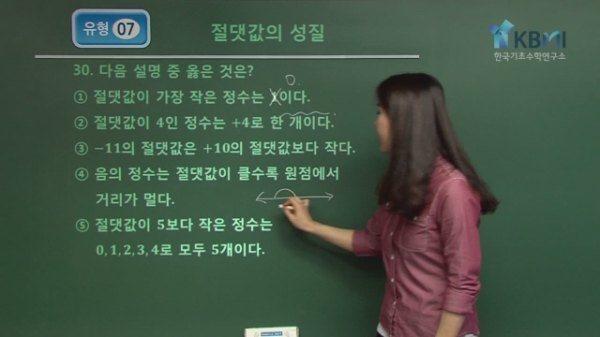 유형 07
절댓값의 성질
KBMI
한국기초수학연구소
30. 다음 설명 중 옳은 것은?
0.
① 절댓값이 가장 작은 정수는 1이다.
② 절댓값이 4인 정수는 +4로 한 개이다.
③ −11의 절댓값은 +10의 절댓값보다 작다.
④ 음의 정수는 절댓값이 클수록 원점에서
거리가 멀다.
⑤ 절댓값이 5보다 작은 정수는
0, 1, 2, 3, 4로 모두 5개이다.